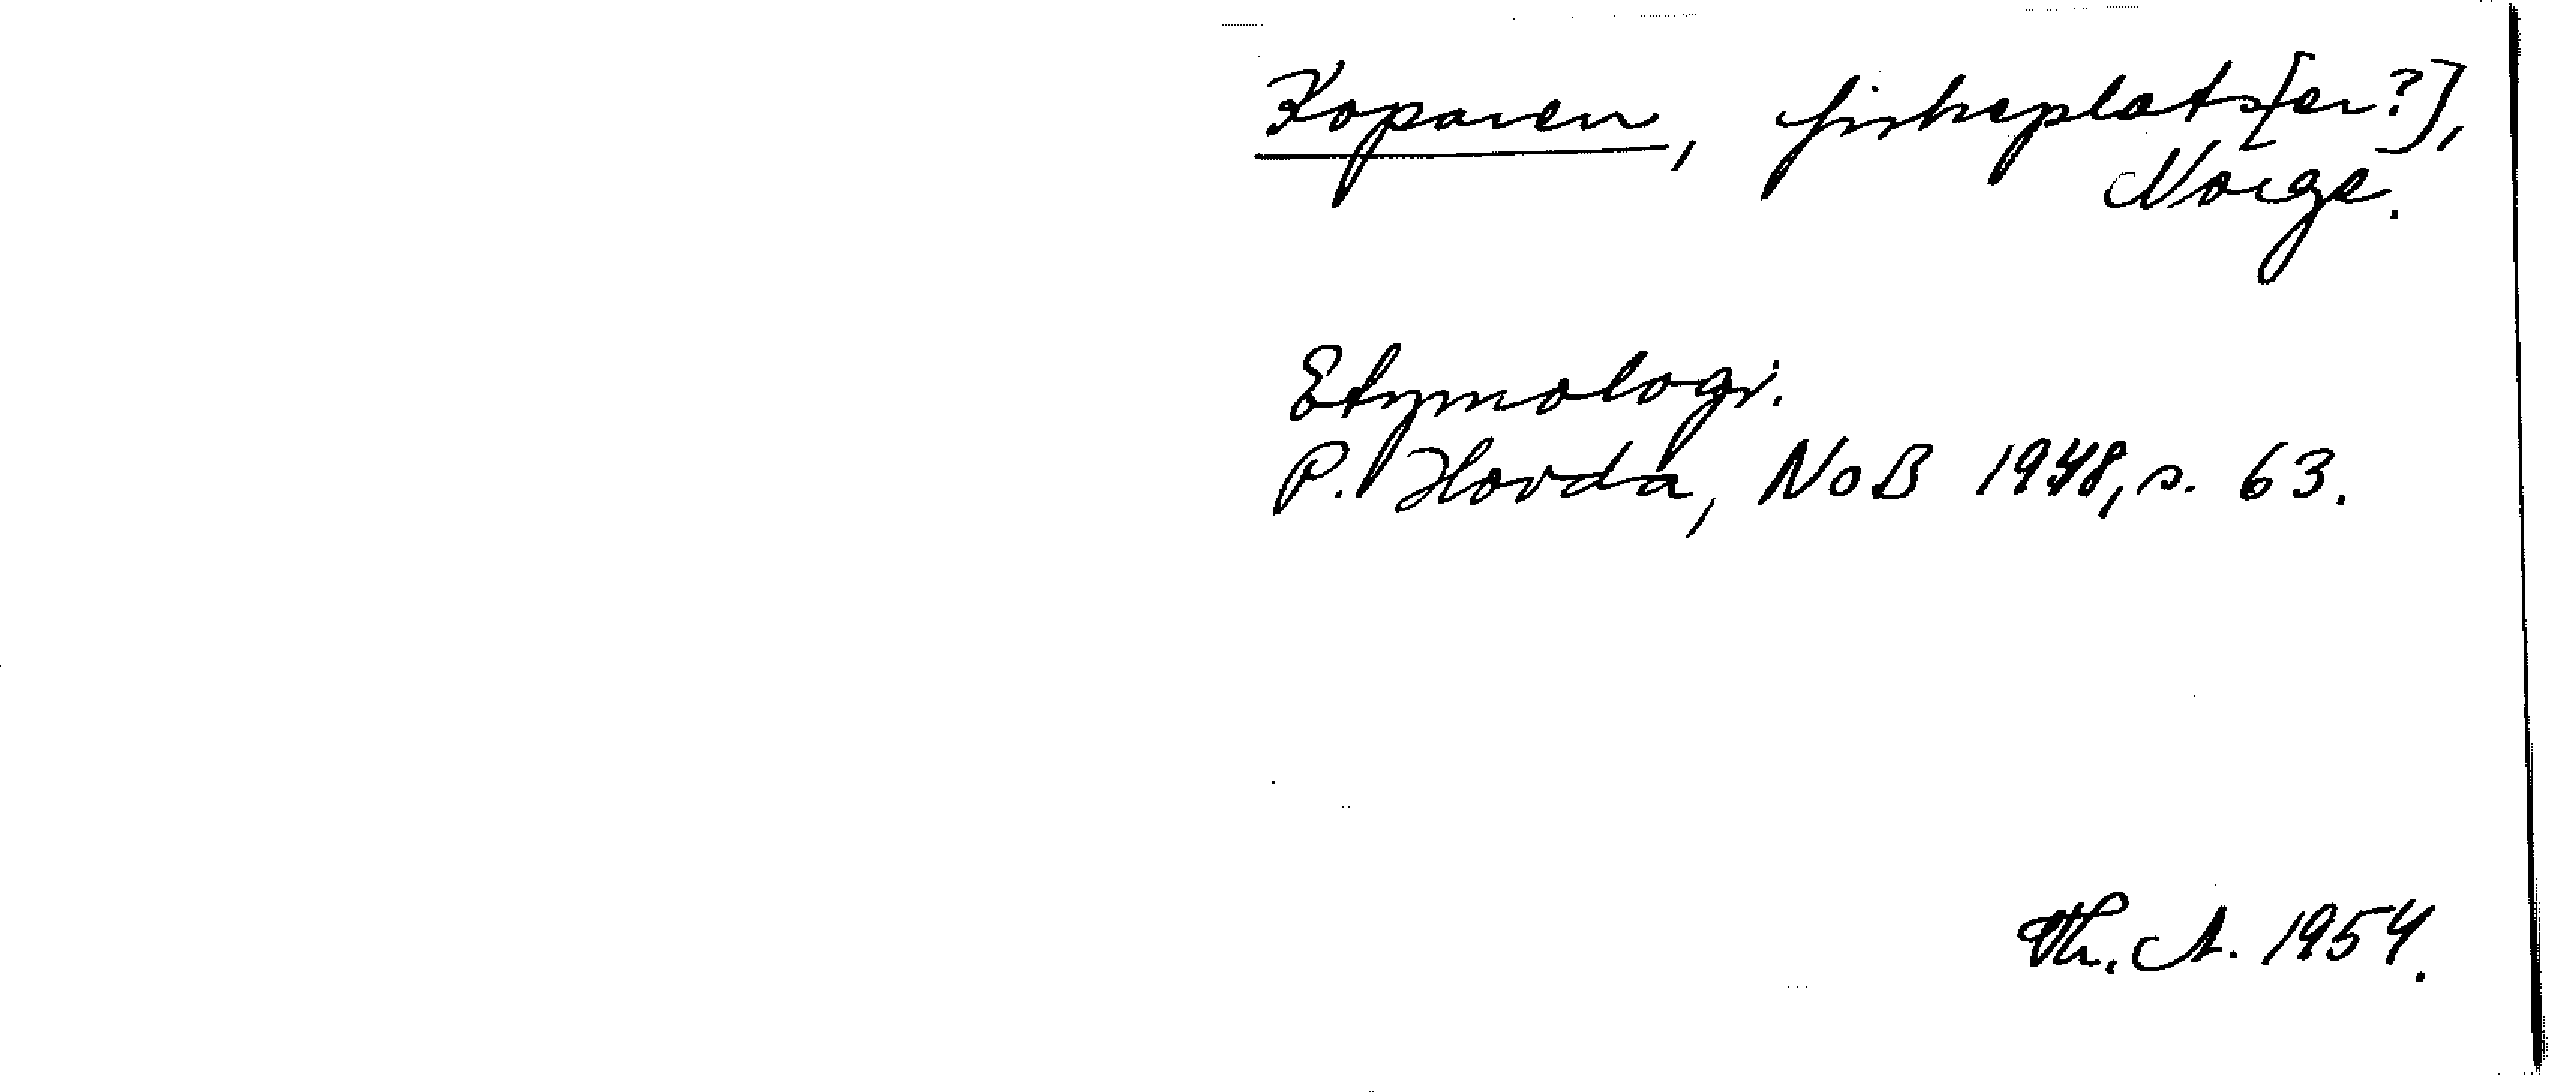 Koparen, fiskeplats[er?],
Norge.
Etymologi.
P. Hovda, NoB 1948, s. 63.
Th. A. 1954.